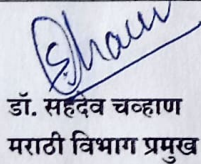 डॉ. सहदेव चव्हाण
मराठी विभाग प्रमुख